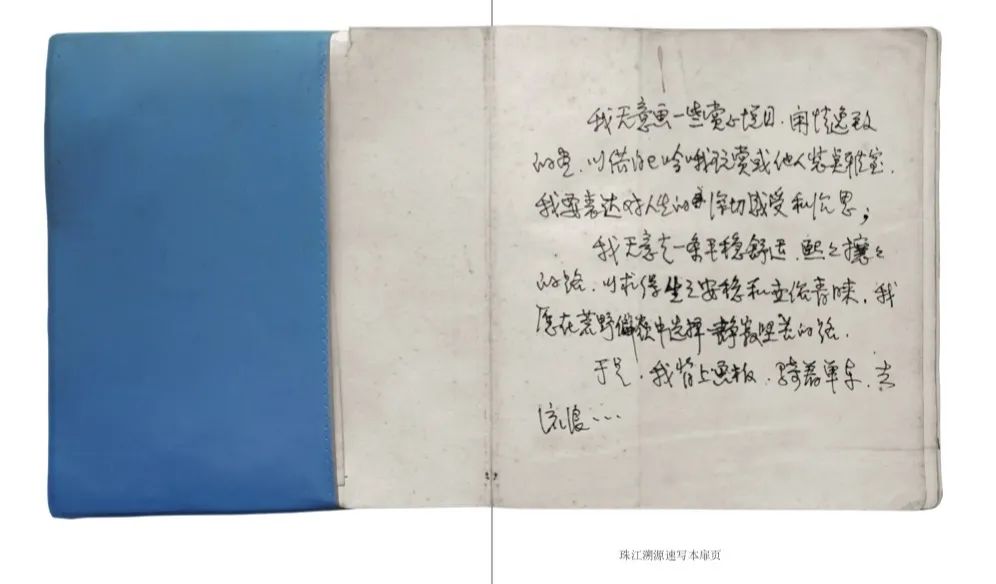 我无意画一些赏心悦目、闲情逸致
的画，以供自己吟哦玩赏或他人装点雅室，
我要表达对人生的深切感受和沉思；
我无意走一条平稳舒适、熙々攘々
的路，以求得生之安稳和世俗青睐，我
愿在荒野僻壤中选择一静寂坚苦的路。
于是，我背上画板，骑着单车，去
流浪…
珠江溯源速写本扉页